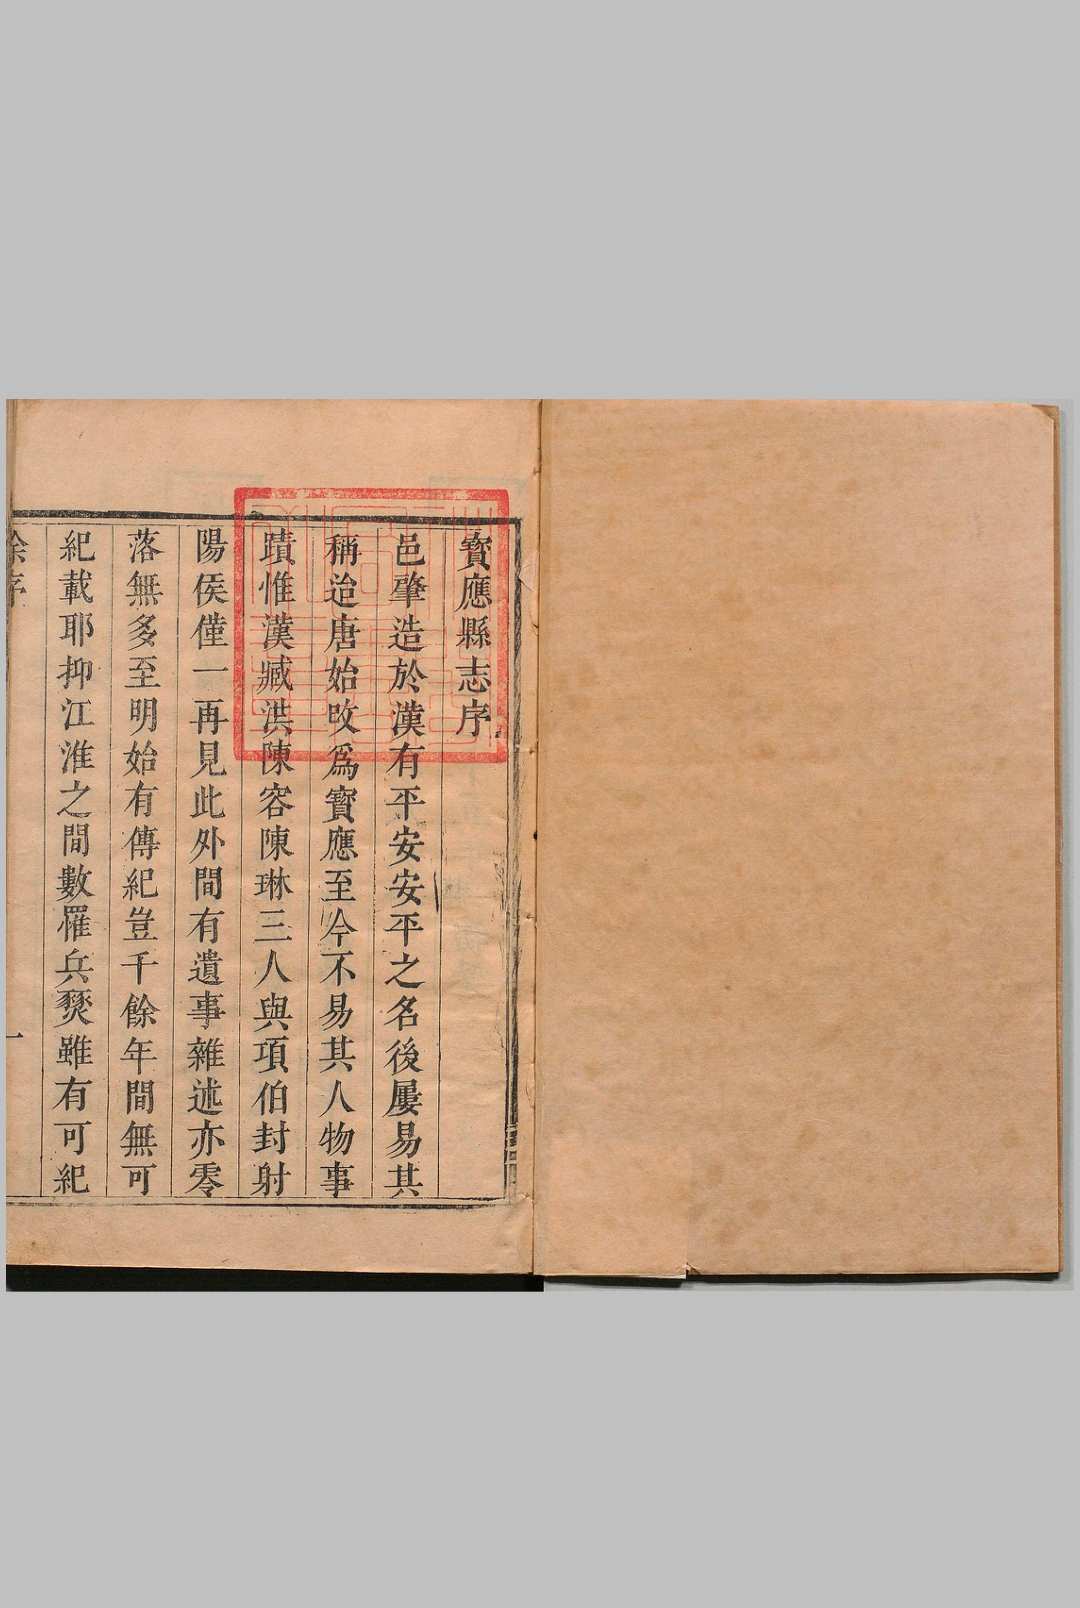 寳應縣志序
邑肇造於漢有平安安平之名後屢易其
稱迨唐始攺爲寳應至今不易其人物事
蹟惟漢臧洪陳容陳琳三人與項伯封射
陽侯僅一再見此外間有遺事雜述亦零
落無多至明始有傳紀豈千餘年間無可
紀載耶抑江淮之間數罹兵燹雖有可紀
序
一